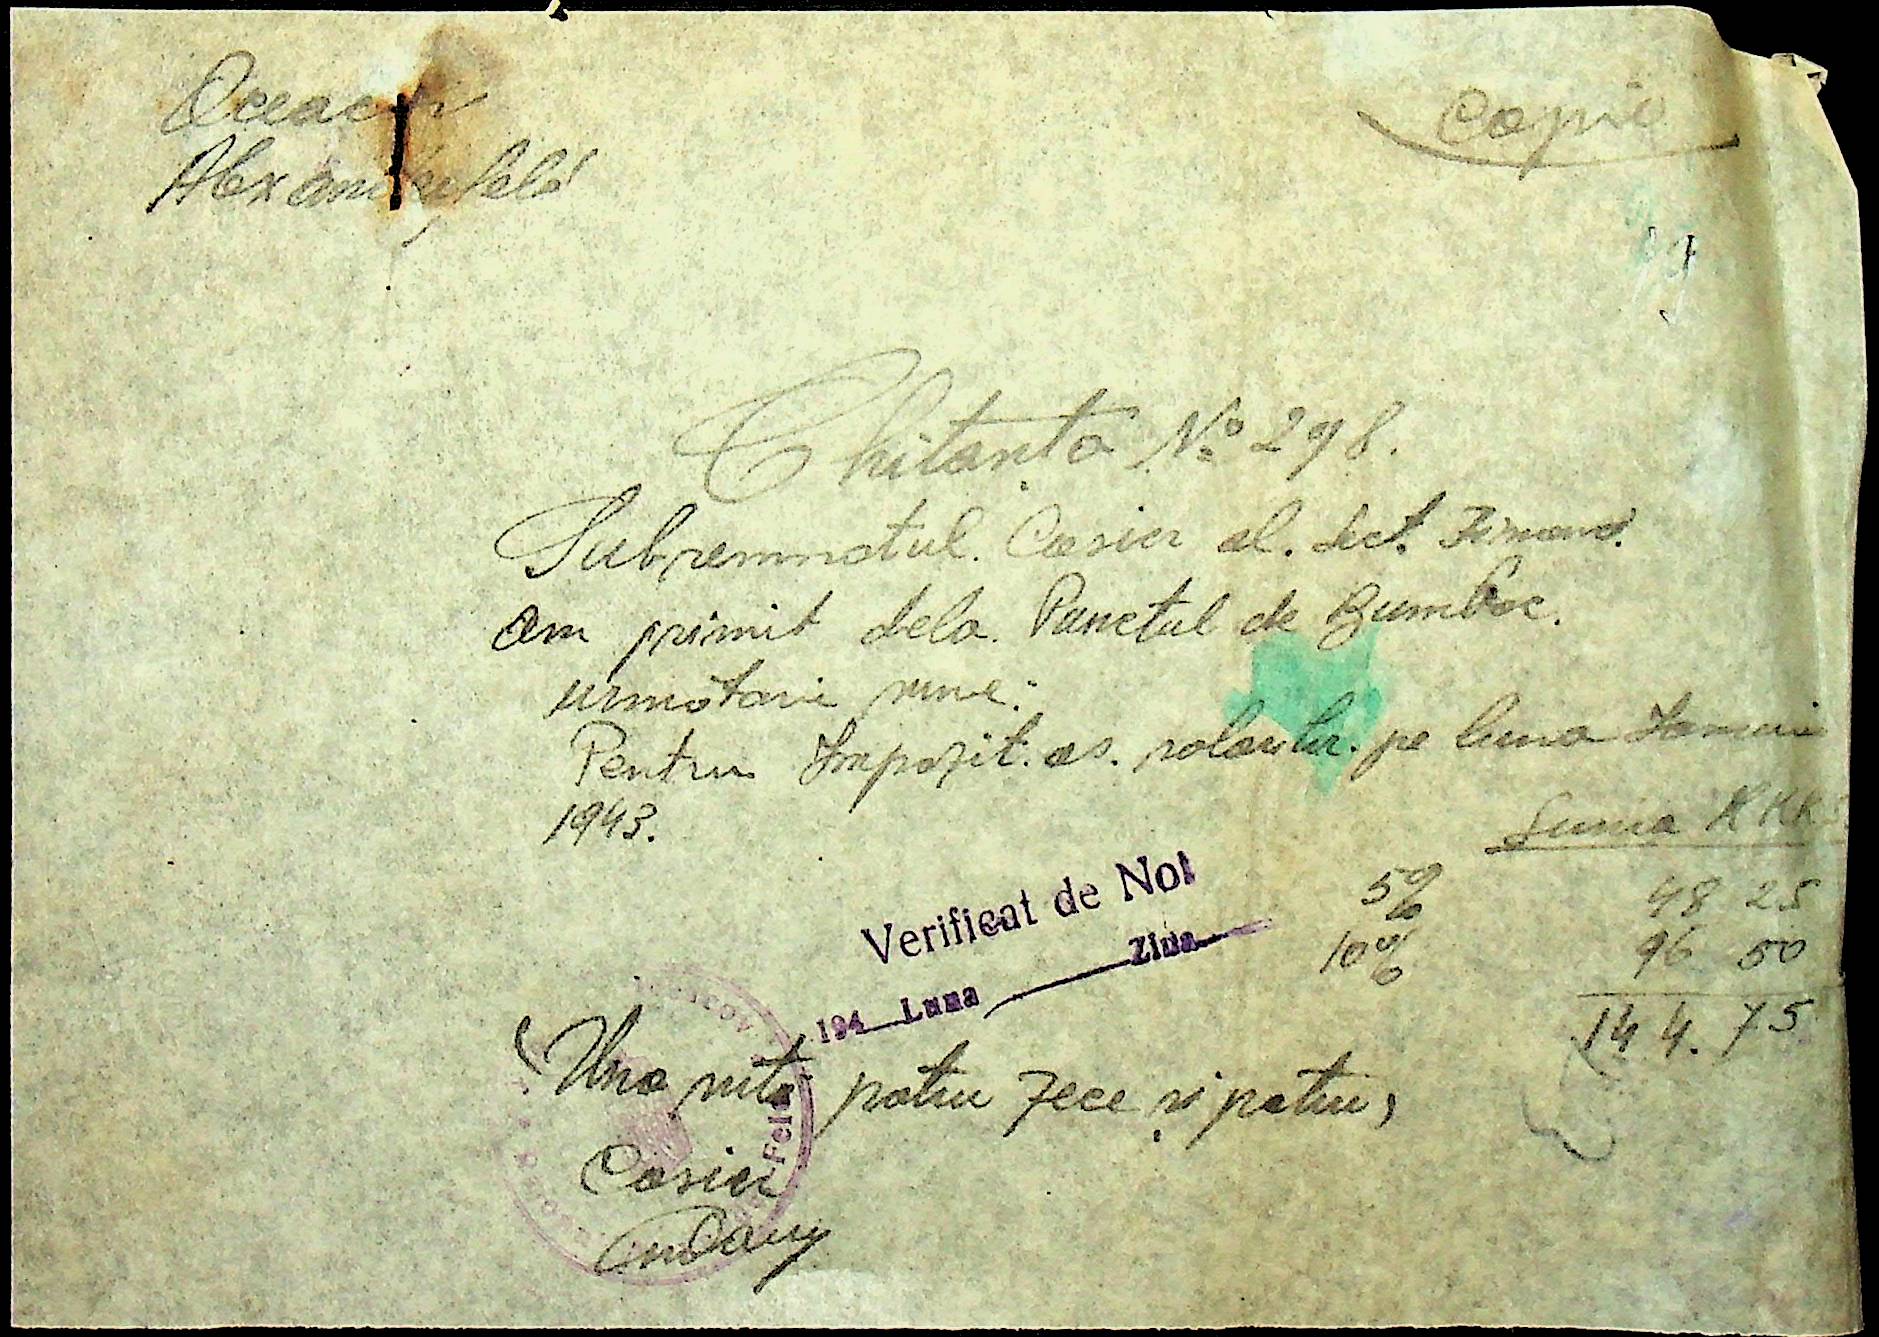 Copie
Alexanderfeld
Chitanta No 298.
Subsemnatul. Casier al. Sect. Financ.
Am primit dela. Punctul de Bumbac.
urmatorie sume:
Pentru Impozit. as. solarular. pe luna Ianuarie
1943.
Suma RKKS
5% 48 25
10% 96 50
144.75
Verificat de Noi
194 Luna Ziua
(Una suta patru zece si patru,
Casier